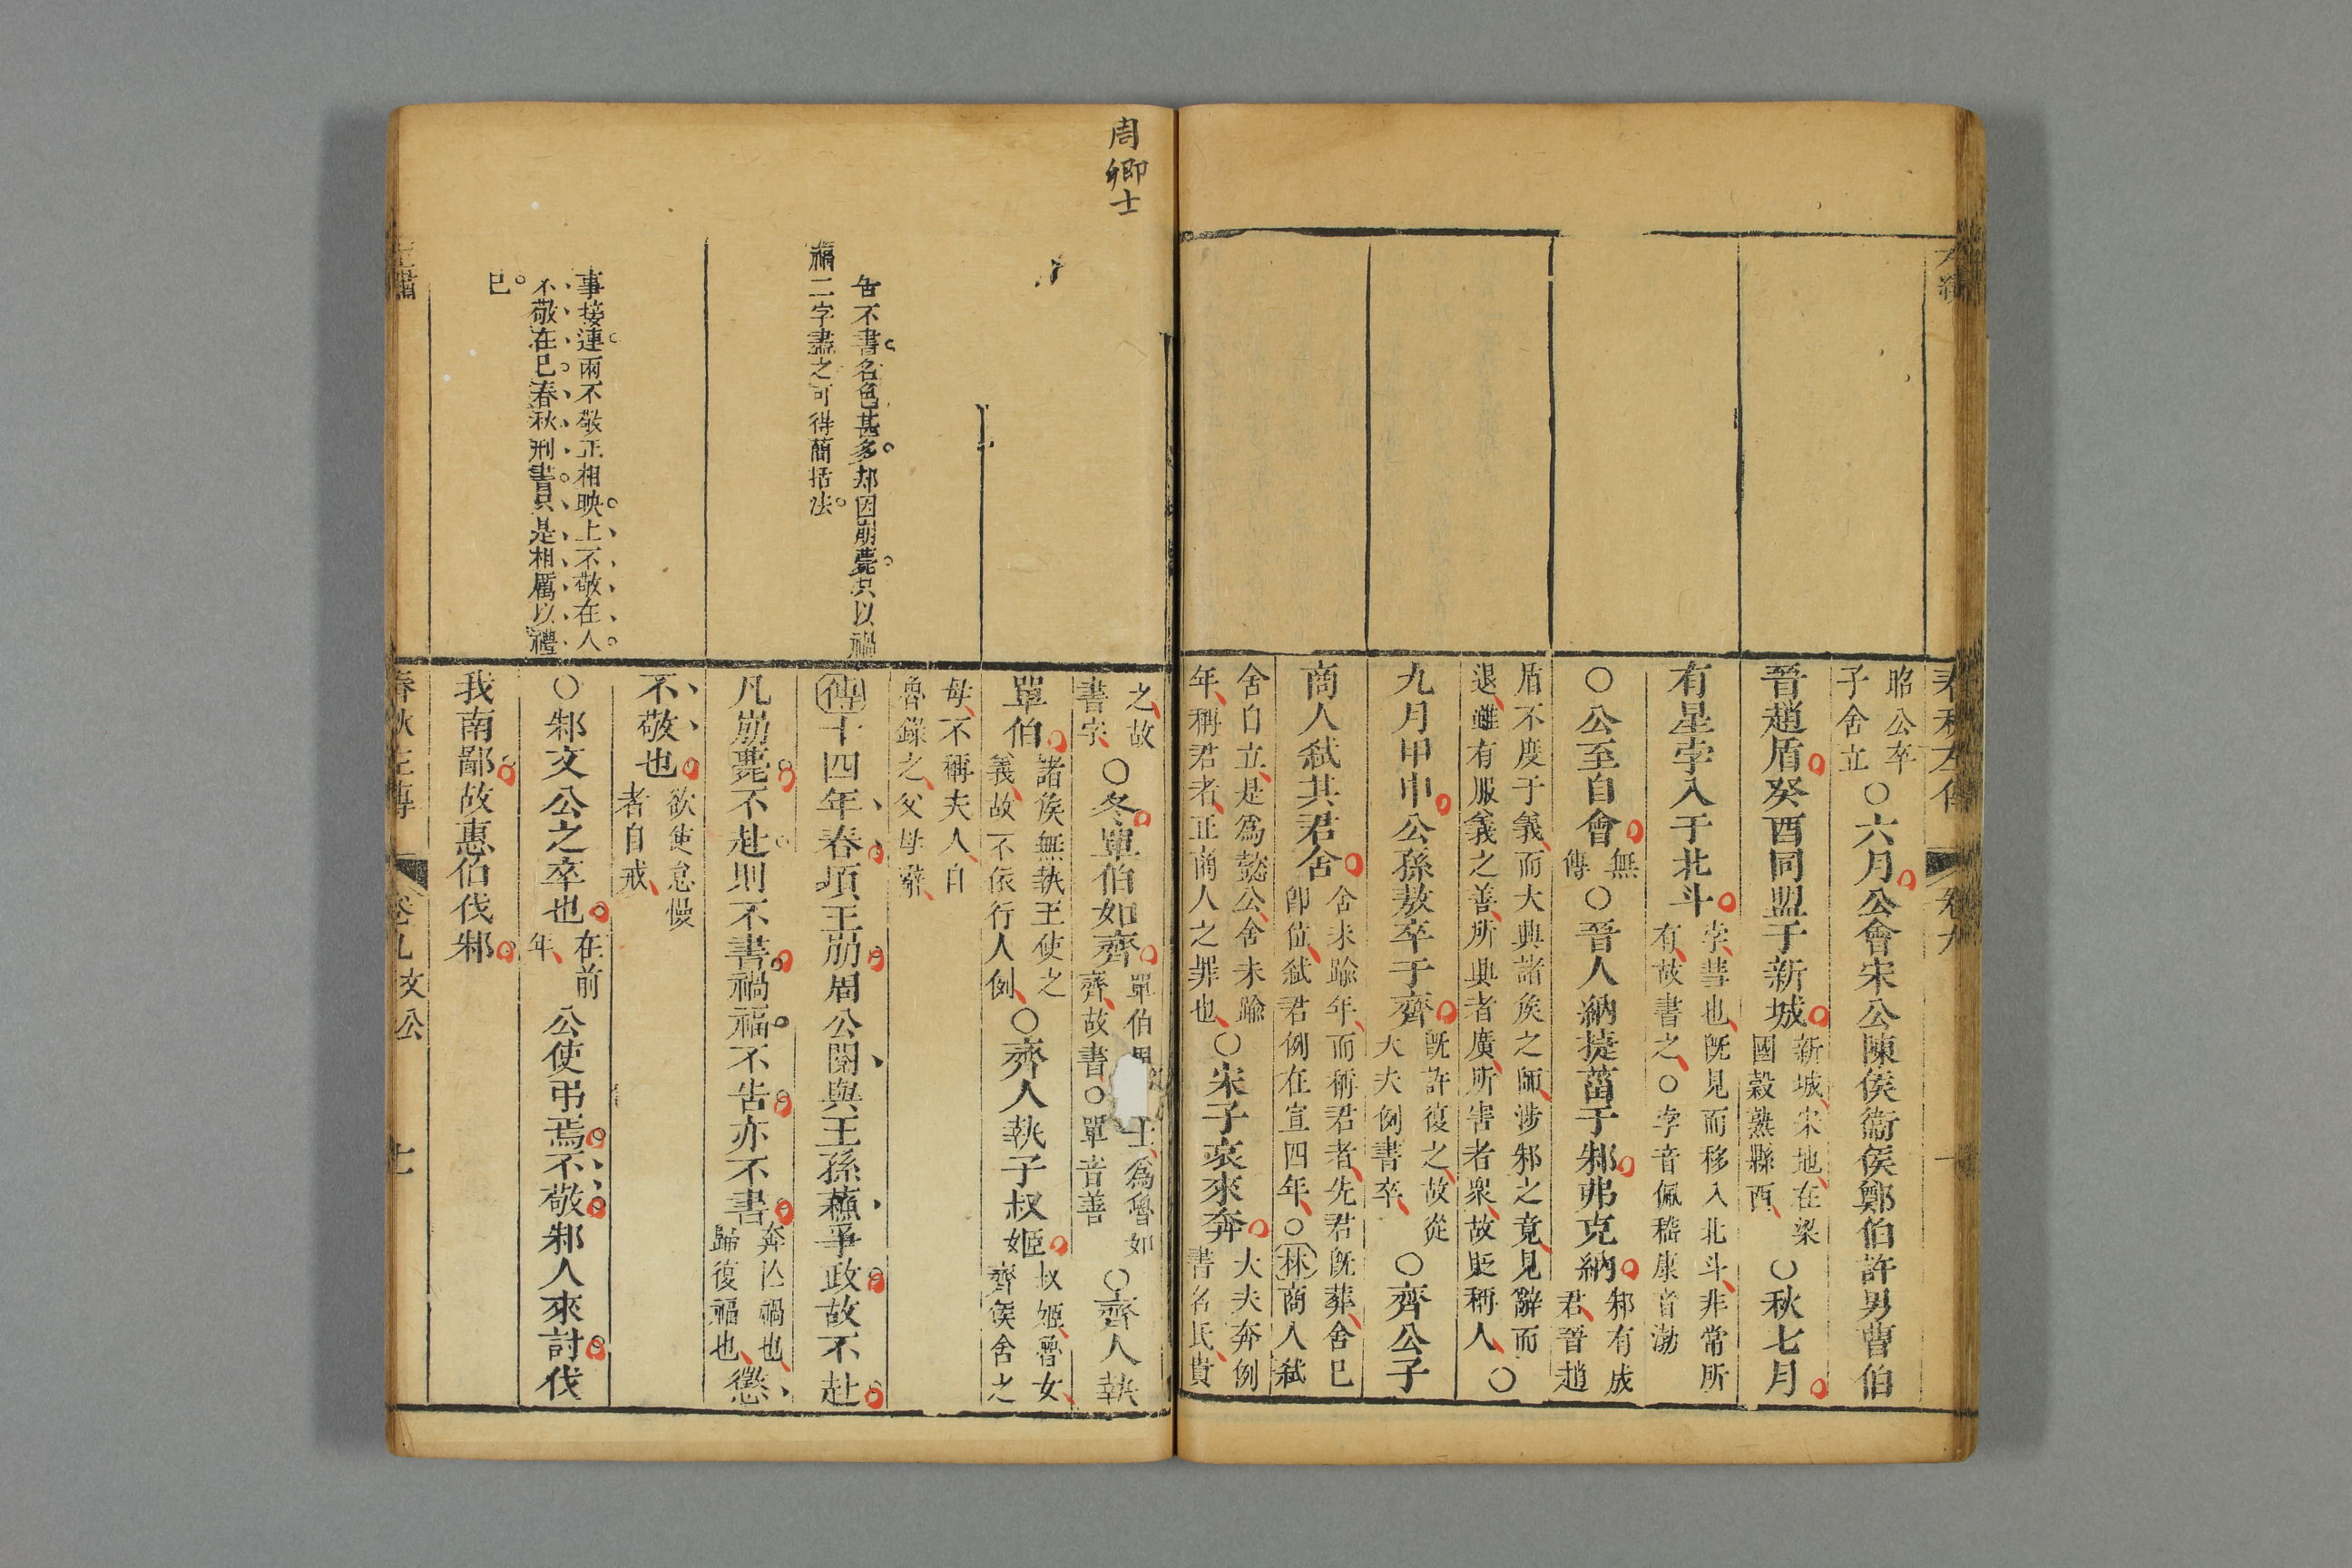 昭公卒
子舍立
○六月公會宋公陳侯衛侯鄭伯許男曹伯
晉趙盾癸酉同盟于新城
新城宋地在梁
國穀熟縣西
○秋七月
有星孛入于北斗
孛彗也既見而移入北斗非常所
有故書之○孛音佩嵇康音渤
○公至自會
無
傳
○晉人納捷菑于邾弗克納
邾有成
君晉趙
盾不度于義而大興諸侯之師涉邾之竟見辭而
退雖有服義之善所興者廣所害者衆故貶稱人
○
九月甲申公孫敖卒于齊
既許復之故從
大夫例書卒
○齊公子
商人弑其君舍
舍未踰年而稱君者先君既葬舍已
卽位弑君例在宣四年○林商人弑
舍自立是爲懿公舍未踰
年稱君者正商人之罪也
○宋子哀來奔
大夫奔例
書名氏貴
之故
書字
○冬單伯如齊
單伯周 士爲魯如
齊故書○單音善
○齊人執
單伯
諸侯無執王使之
義故不依行人例
○齊人執子叔姬
叔姬魯女
齊侯舍之
母不稱夫人自
魯錄之父母辭
傳十四年春頃王崩周公閱與王孫蘇爭政故不赴
凡崩薨不赴則不書禍福不告亦不書
奔亾禍也
歸復福也
懲
不敬也
欲使怠慢
者自戒
○邾文公之卒也
在前
年
公使弔焉不敬邾人來討伐
我南鄙故惠伯伐邾
春秋左傳
卷九文公
十一
周卿士
告不書名色甚多却因崩薨只以禍
福二字盡之可得簡括法
事接連兩不敬正相映上不敬在人
不敬在已春秋刑書只是相厲以禮
已